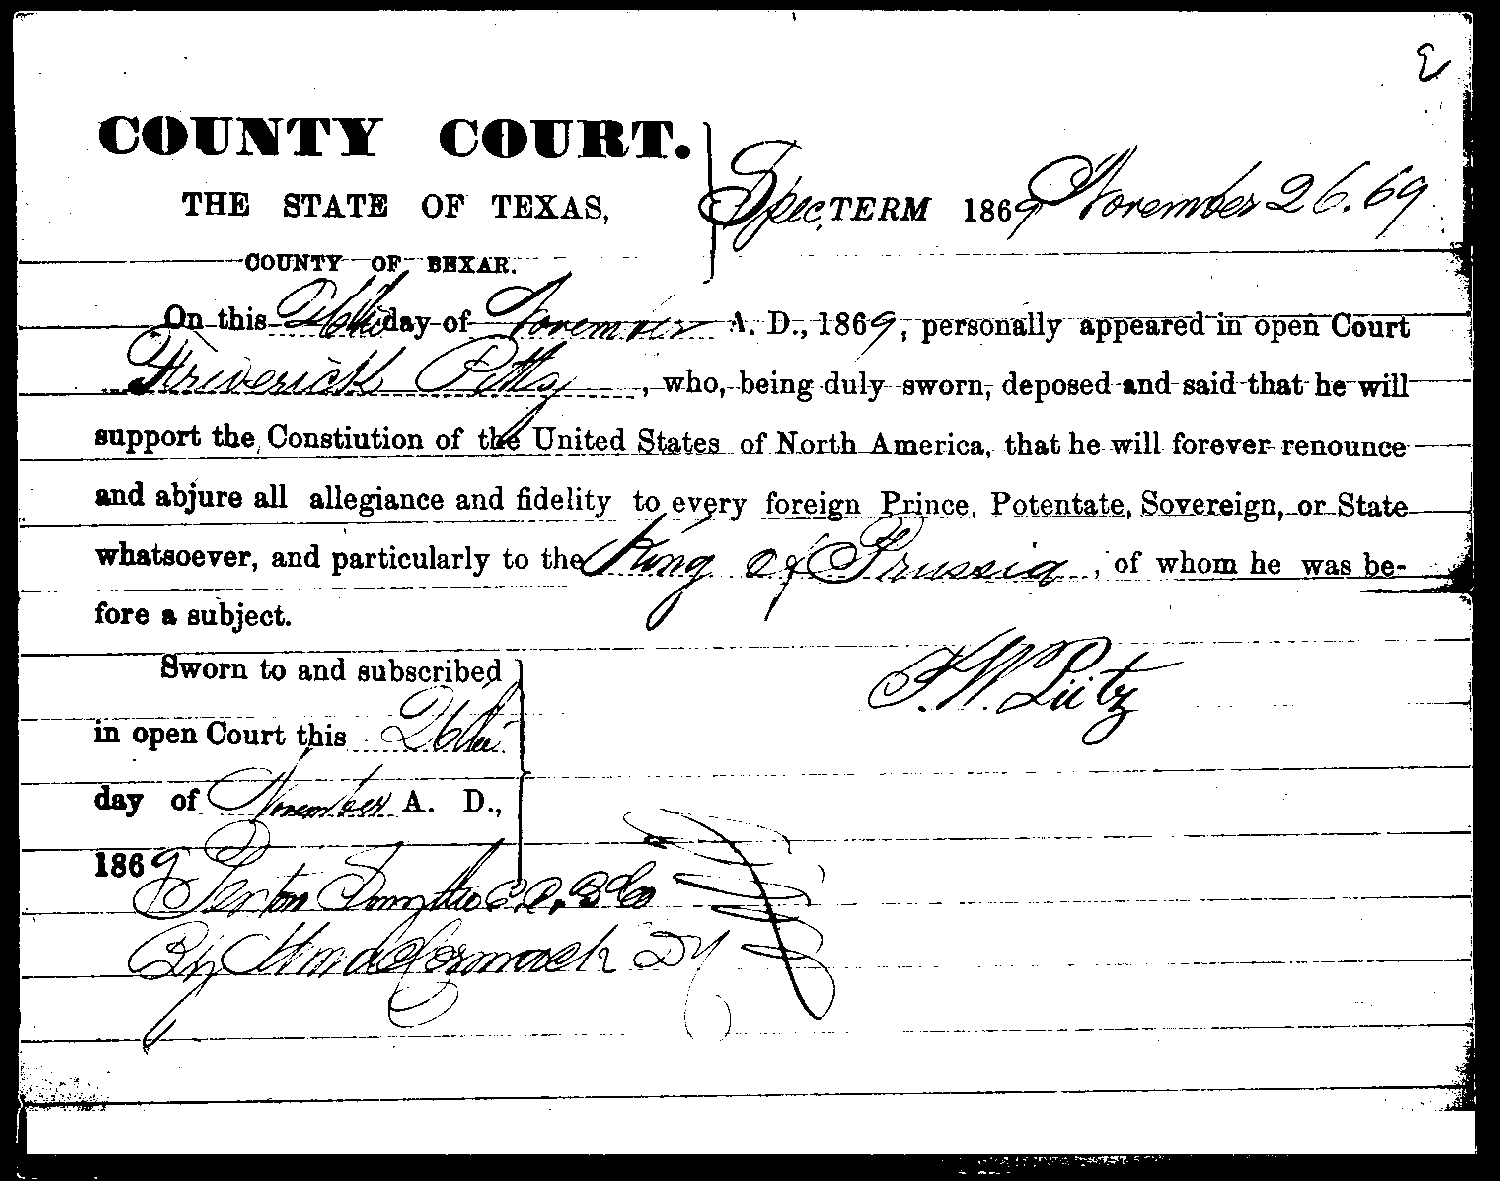 COUNTY COURT.
THE STATE OF TEXAS,
COUNTY OF BEXAR.
Spec, TERM 1869 November 26. 69
On this 26th day of November A. D., 1869, personally appeared in open Court
Friederick Pitts, who, being duly sworn, deposed and said that he will
support the Constiution of the United States of North America, that he will forever renounce
and abjure all allegiance and fidelity to every foreign Prince, Potentate, Sovereign, or State
whatsoever, and particularly to the King of Prussia, of whom he was be-
fore a subject.
Sworn to and subscribed
in open Court this 26th
day of November A. D.,
1869
F. W. Pütz
C.C.B.Co
By McCormack Dy